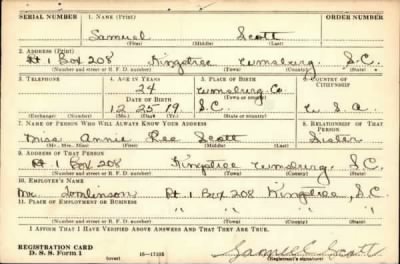 SERIAL NUMBER 1. NAME (Print) ORDER NUMBER
Samuel Scott
(First) (Middle) (Last)
2. ADDRESS (Print)
Rt 1 Box 208 Kingstree Wmsburg S.C.
(Number and street or R. F. D. number) (Town) (County) (State)
3. TELEPHONE 4. AGE IN YEARS 5. PLACE OF BIRTH 6. COUNTRY OF CITIZENSHIP
24 Wmsburg Co
DATE OF BIRTH (Town or county)
12 25 19 S.C. U.S.A.
(Exchange) (Number) (Mo.) (Day) (Yr.) (State or country)
7. NAME OF PERSON WHO WILL ALWAYS KNOW YOUR ADDRESS 8. RELATIONSHIP OF THAT PERSON
Miss Annie Lee Scott Sister
(Mr., Mrs., Miss) (First) (Middle) (Last)
9. ADDRESS OF THAT PERSON
Rt 1 Box 208 Kingstree Wmsburg S.C.
(Number and street or R. F. D. number) (Town) (County) (State)
10. EMPLOYER'S NAME
Mr Tomlinson Rt 1 Box 208 Kingstree, S.C.
11. PLACE OF EMPLOYMENT OR BUSINESS
" " " "
(Number and street or R. F. D. number) (Town) (County) (State)
I AFFIRM THAT I HAVE VERIFIED ABOVE ANSWERS AND THAT THEY ARE TRUE.
REGISTRATION CARD
D. S. S. Form 1 16—17105 Samuel Scott
(over) (Registrant's signature)